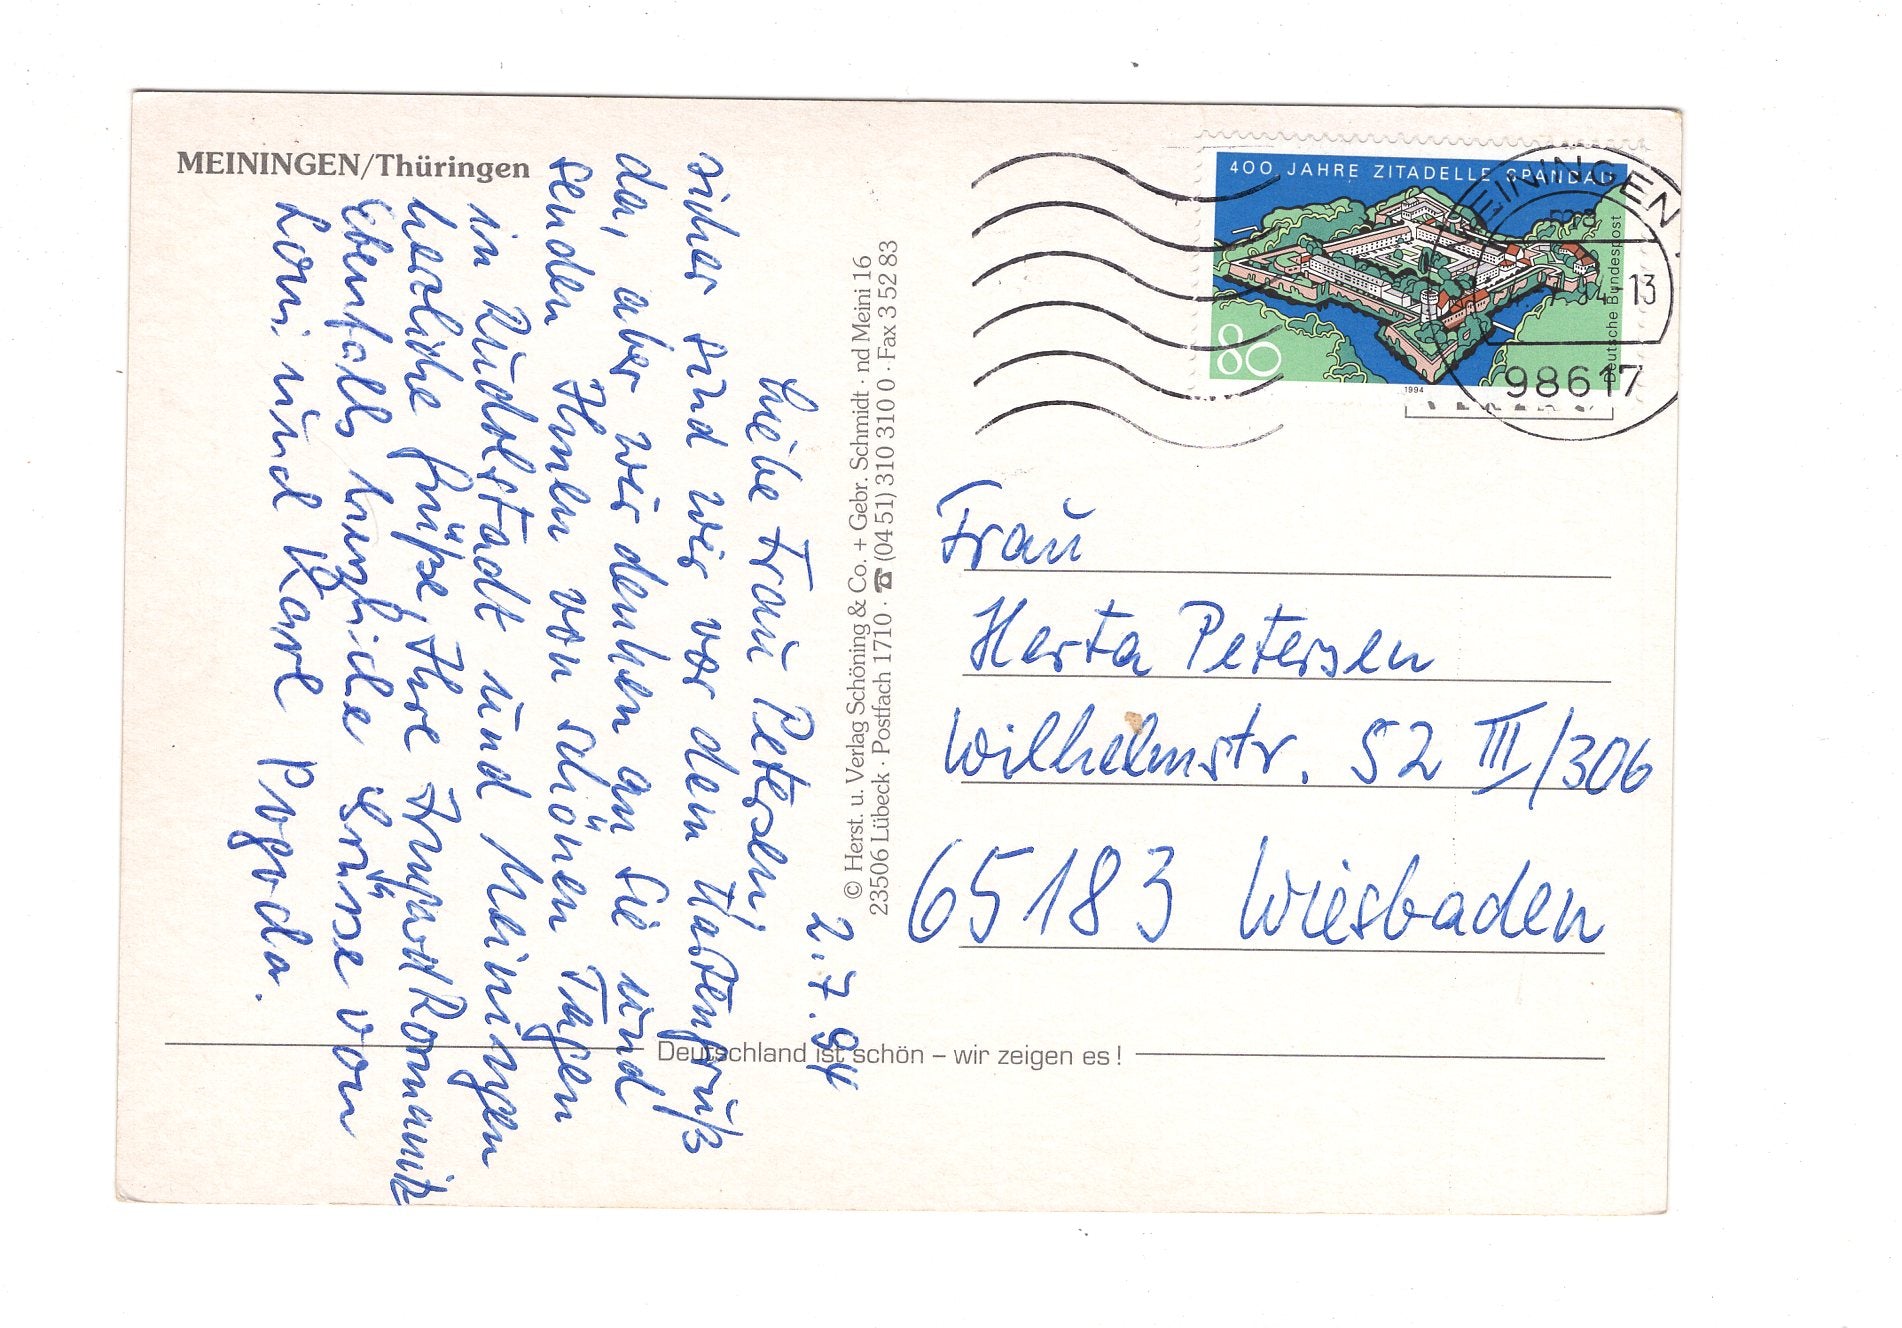 MEININGEN/Thüringen
2.7.94
Liebe Frau Petersen!
sicher sind wir vor dem Kartengruß
da, aber wir denken an Sie und
senden Ihnen von schönen Tagen
in Rudolstadt und Meiningen
herzliche Grüße, Ihre Irmgard Romanitz
Ebenfalls herzliche Grüsse von
Loni und Karl Pogoda.
© Herst. u. Verlag Schöning & Co. + Gebr. Schmidt · nd Meini 16
23506 Lübeck · Postfach 1710 · ☎ (04 51) 310 310 0 · Fax 3 52 83
400 JAHRE ZITADELLE SPANDAU
80
Deutsche Bundespost
1994
MEININGEN
13
98617
Frau
Herta Petersen
Wilhelmstr. 52 III/306
65183 Wiesbaden
Deutschland ist schön – wir zeigen es!